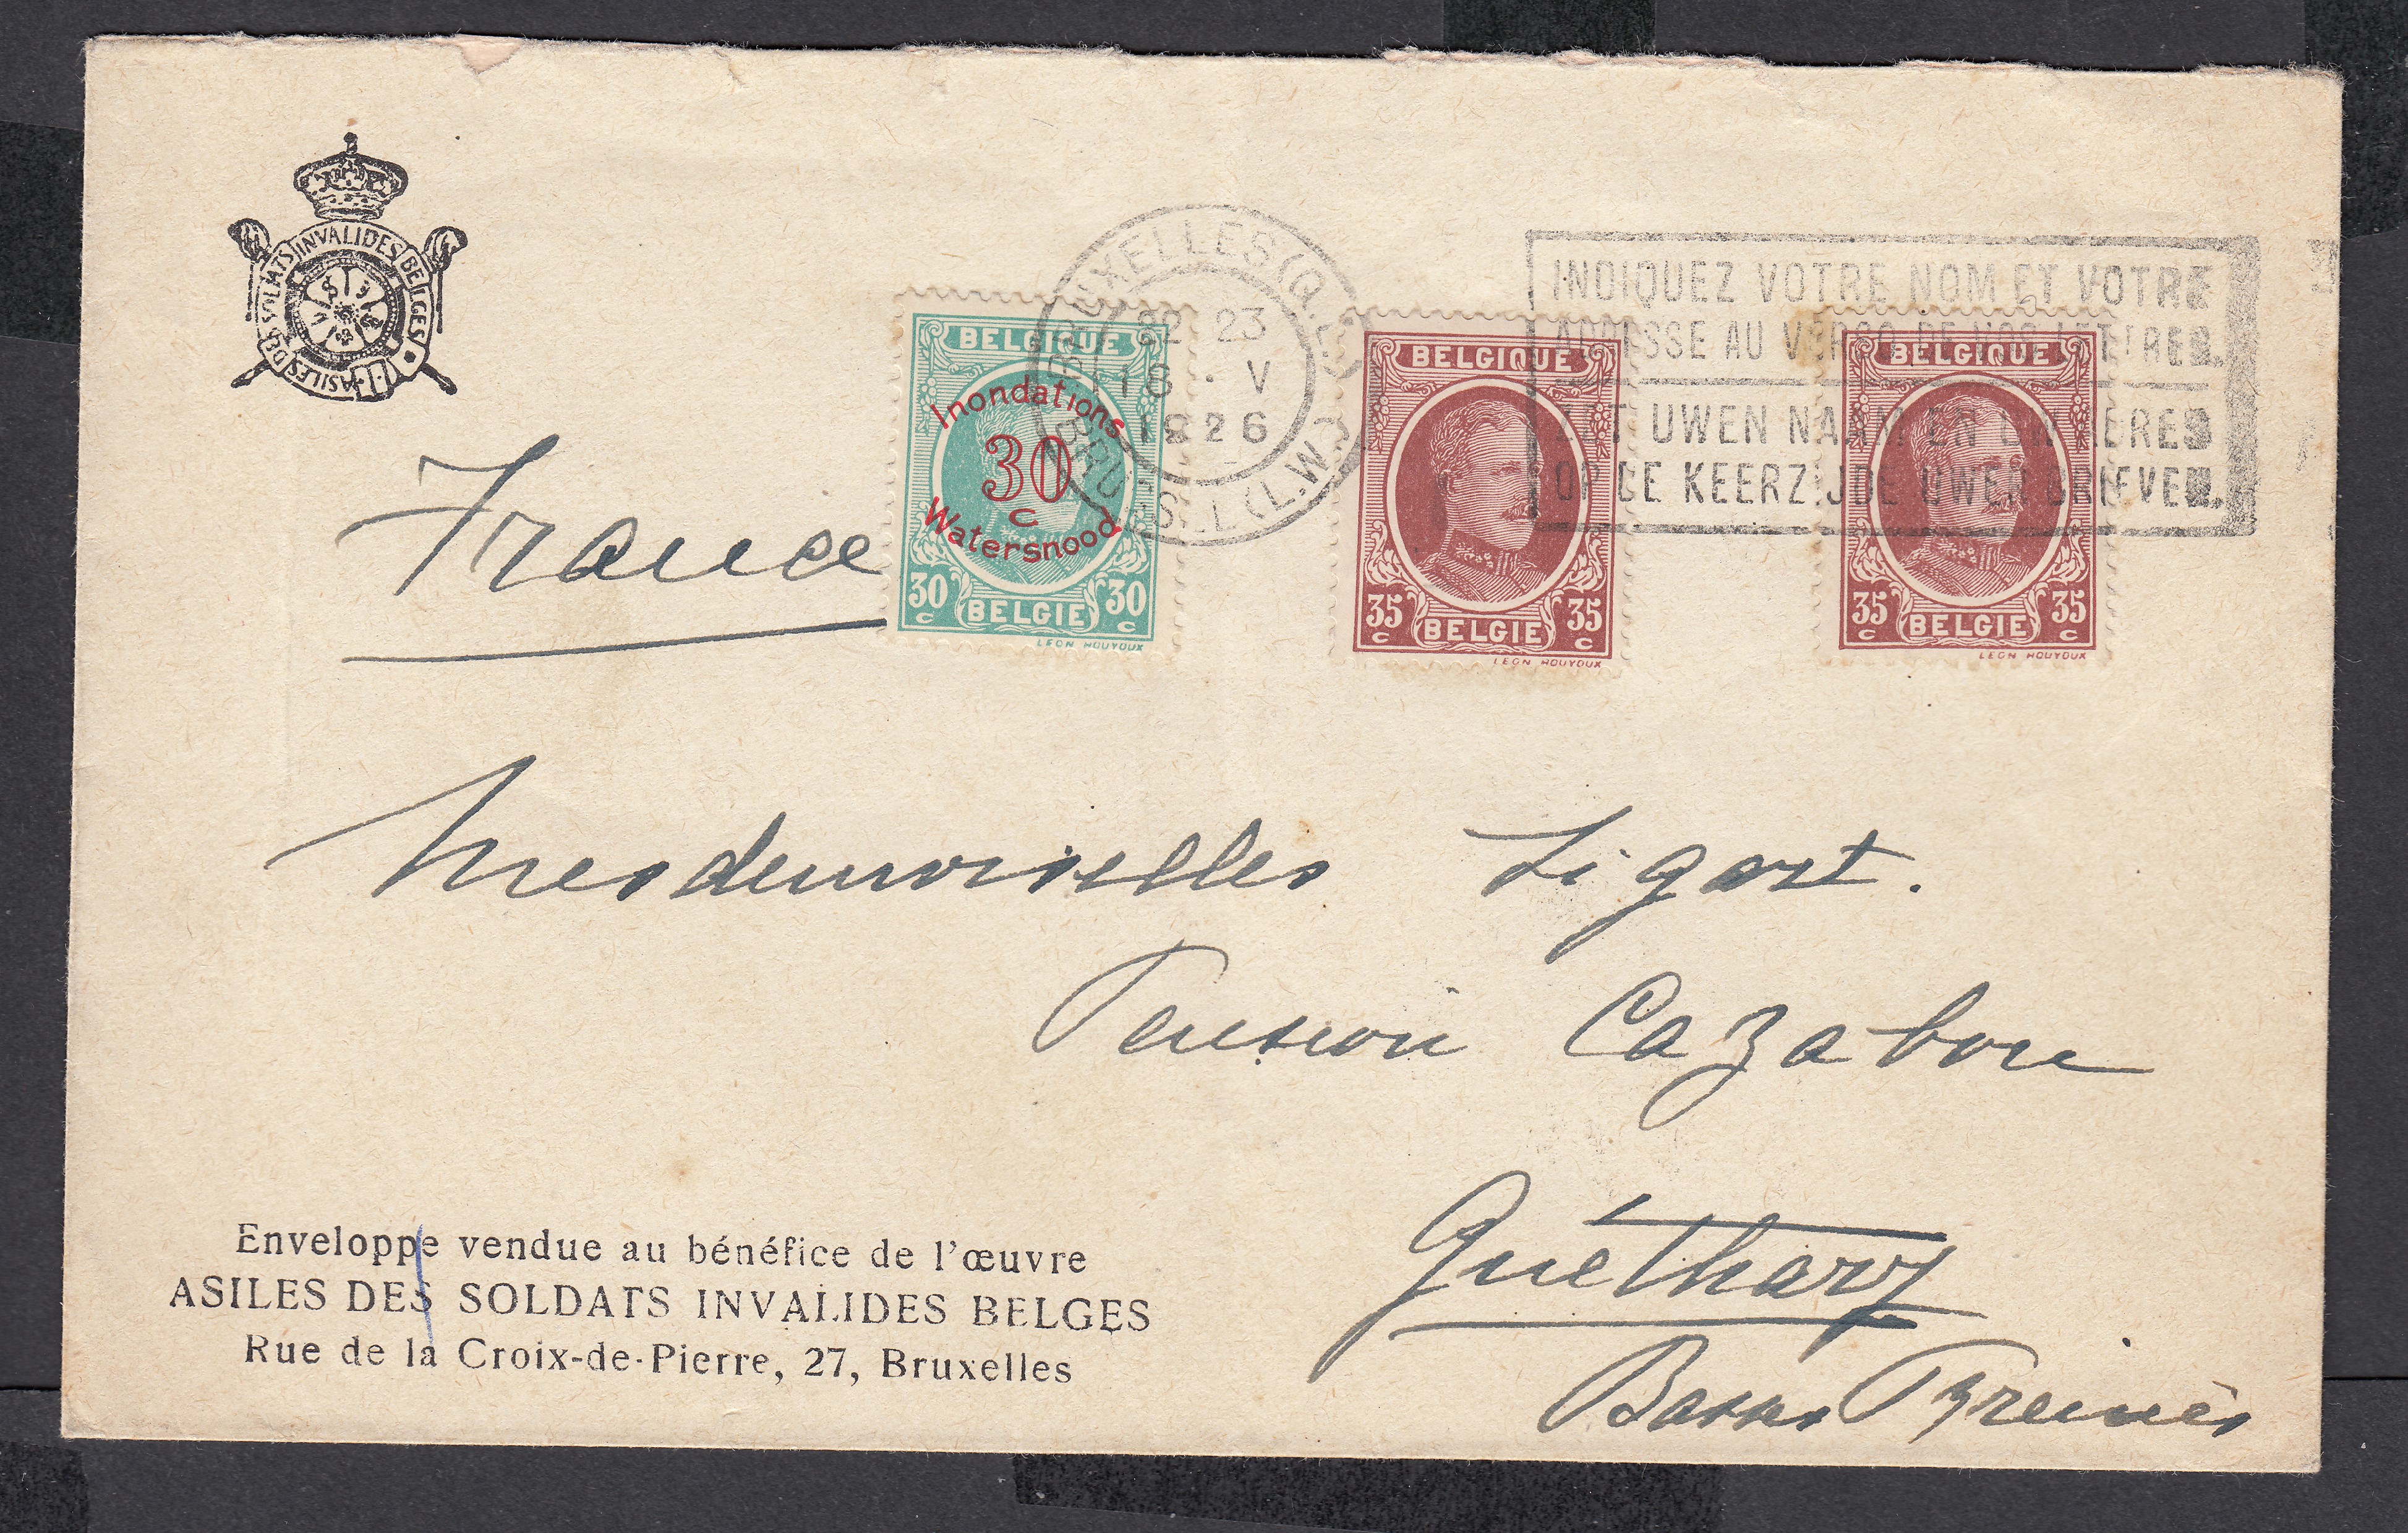 ASILES DES SOLDATS INVALIDES BELGES
BRUXELLES (Q.L.)
22-23
18 · V
1926
BRUSSEL (L.W.)
INDIQUEZ VOTRE NOM ET VOTRE
ADRESSE AU VERSO DE VOS LETTRES.
ZET UWEN NAAM EN UW ADRES
OP DE KEERZIJDE UWER BRIEVEN.
BELGIQUE
Inondations
30
c
Watersnood
30 c BELGIE 30 c
LEON HOUYOUX
BELGIQUE
35 c BELGIE 35 c
LEON HOUYOUX
BELGIQUE
35 c BELGIE 35 c
LEON HOUYOUX
France
Mesdemoiselles Ligart.
Pension Cazabon
Guéthary
Basses Pyreinées
Enveloppe vendue au bénéfice de l'œuvre
ASILES DES SOLDATS INVALIDES BELGES
Rue de la Croix-de-Pierre, 27, Bruxelles